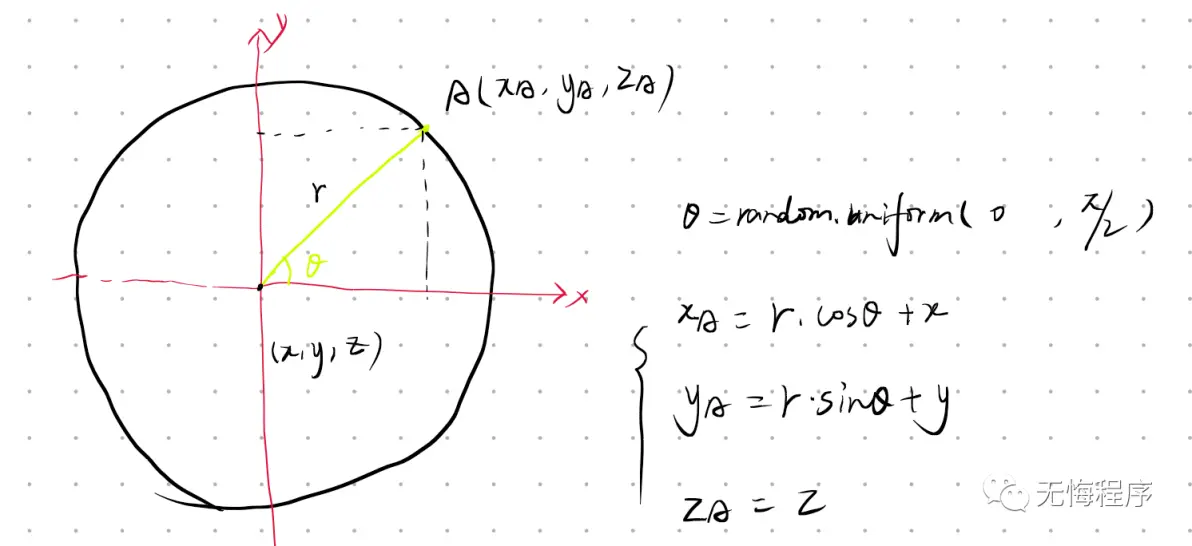 y
A(xA, yA, zA)
r
θ
x
(x, y, z)
θ = random.uniform( 0 , π/2 )
xA = r·cosθ + x
yA = r·sinθ + y
zA = z
无悔程序